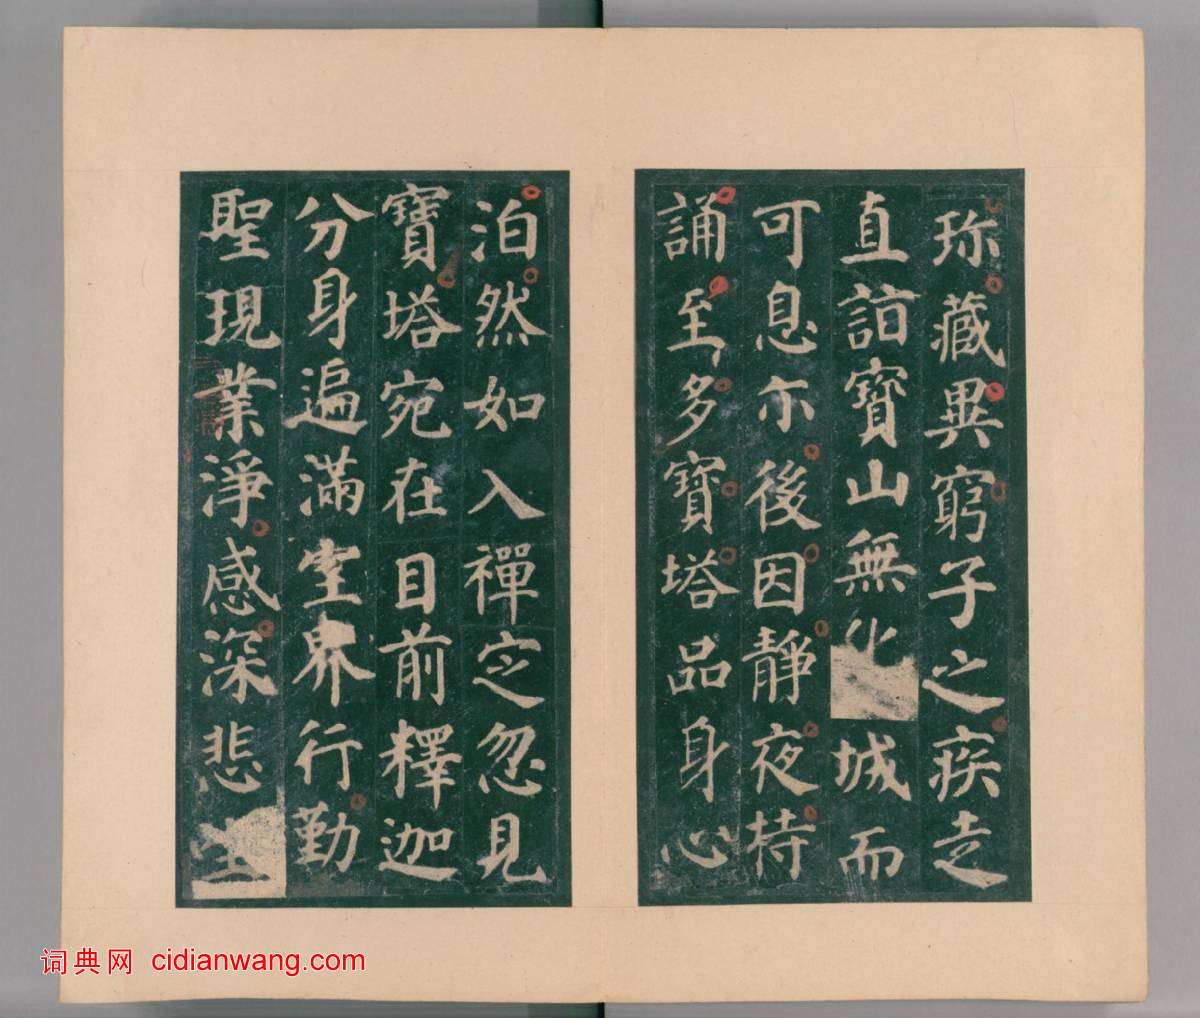 珎藏異窮子之疾走
直詣寶山無化城而
可息尓後因靜夜持
誦至多寶塔品身心
泊然如入禪定忽見
寶塔宛在目前釋迦
分身遍滿空界行勤
聖現業淨感深悲生
词典网 cidianwang.com